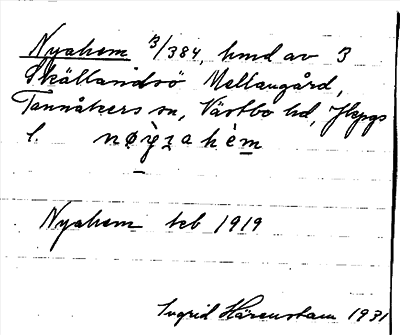 Nyahem 3/384, hmd av 3
Skällandsö Mellangård,
Tannåkers sn, Västbo hd, Jkpgs
l. nøỳzahèm
Nyahem teb 1919
Ingrid Härenstam 1931